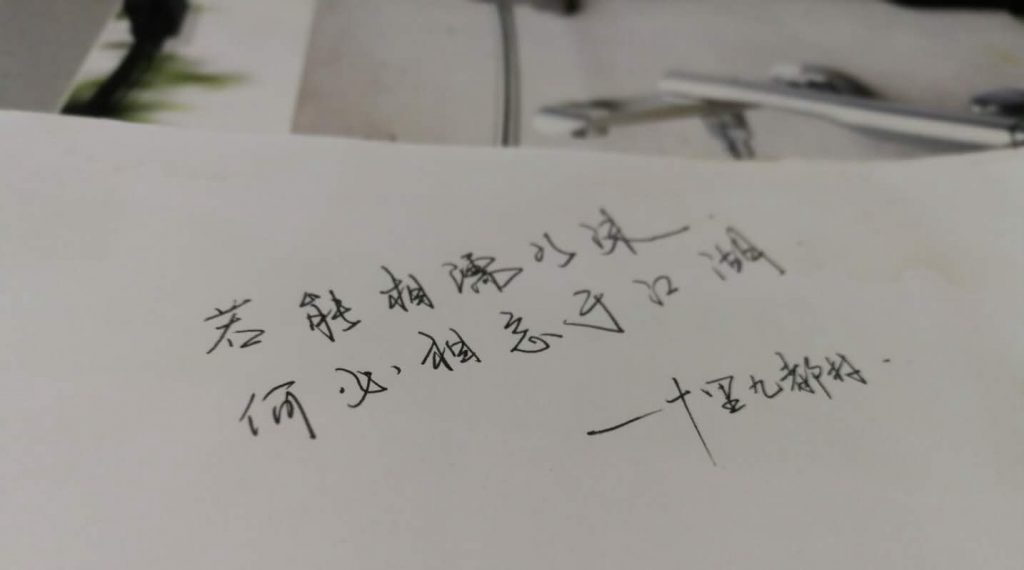 若能相濡以沫
何必相忘于江湖
一十里九都村